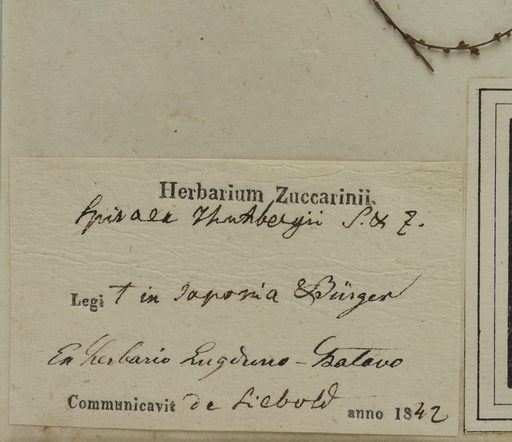 Herbarium Zuccarinii.
Spiraea Thunbergii S. & Z.
Legit in Japonia Bürger
Ex herbario Lugduno-Batavo
Communicavit de Siebold anno 1842